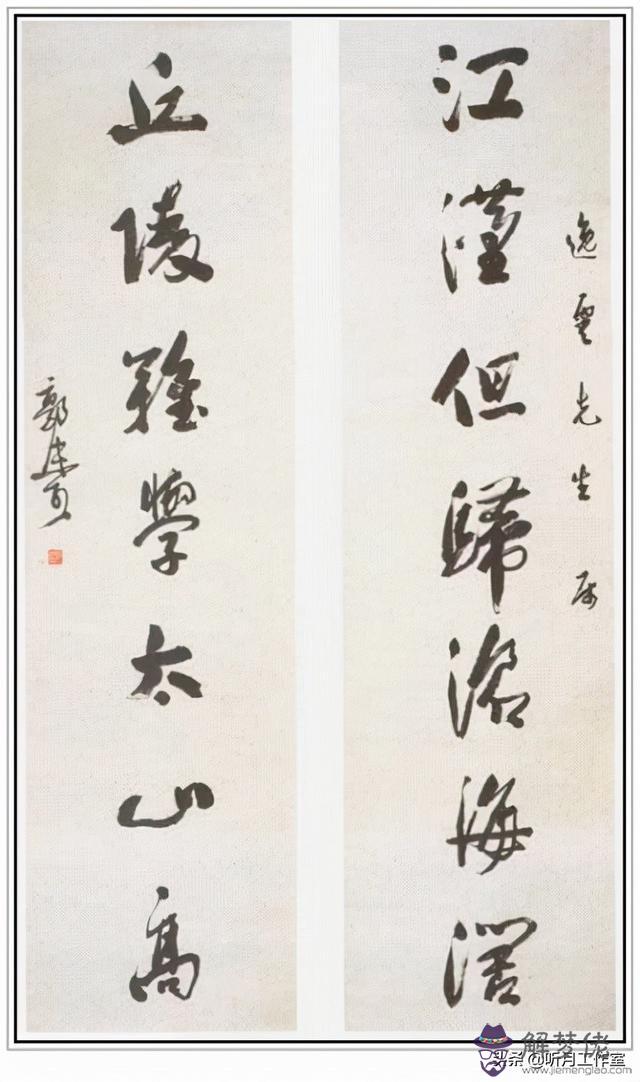 逸雲先生属
江漢但歸滄海濶
丘陵難學太山高
解梦佬
头条 @听月工作室
www.jiemenglao.com